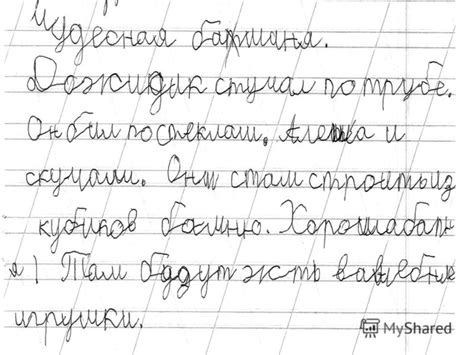 Чудесная батшаня.
Дожидик стучал по трубе.
Он бил по стеклаш. Алешка и
скучали. Они стали строить из
кубиков башню. Хороша баш
я! Там будут жить вашебные
игрушки.
MyShared